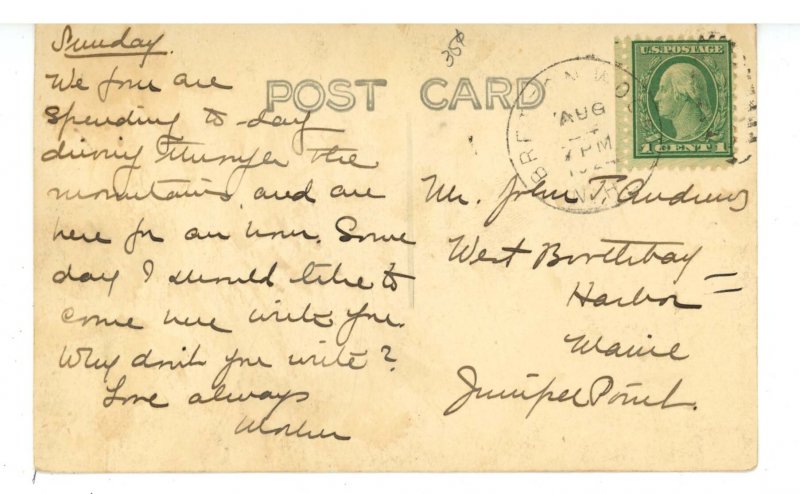 Sunday.
We four are
spending to-day
driving through the
mountains and are
here for an hour. Some
day I would like to
come here with you.
Why don't you write?
Love always
Mother
35¢
POST CARD
BRETTON WOO
AUG
7 PM
N.H.
U.S. POSTAGE
1 CENT 1
Mr. John T. Andrews
West Boothbay
Harbor
Maine
Juniper Point.